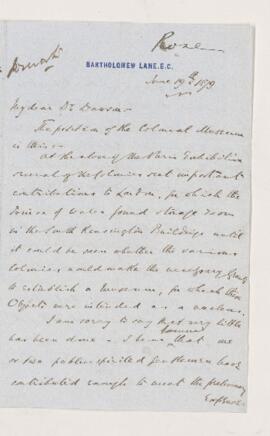 Rose
BARTHOLOMEW LANE. E.C.
June 19th 1879
My dear Dr Dawson
The position of the Colonial Museum
is this:-
At the close of the Paris Exhibition
several of the Colonies sent important
contributions to London, for which the
Prince of Wales found storage room
in the South Kensington Buildings until
it could be seen whether the various
Colonies would make the necessary
to establish a Museum, for which these
Objects were intended as a nucleus.
I am sorry to say that very little
has been done - I however that one
or two public spirited gentlemen have
contributed enough to meet the preliminary
Expenses